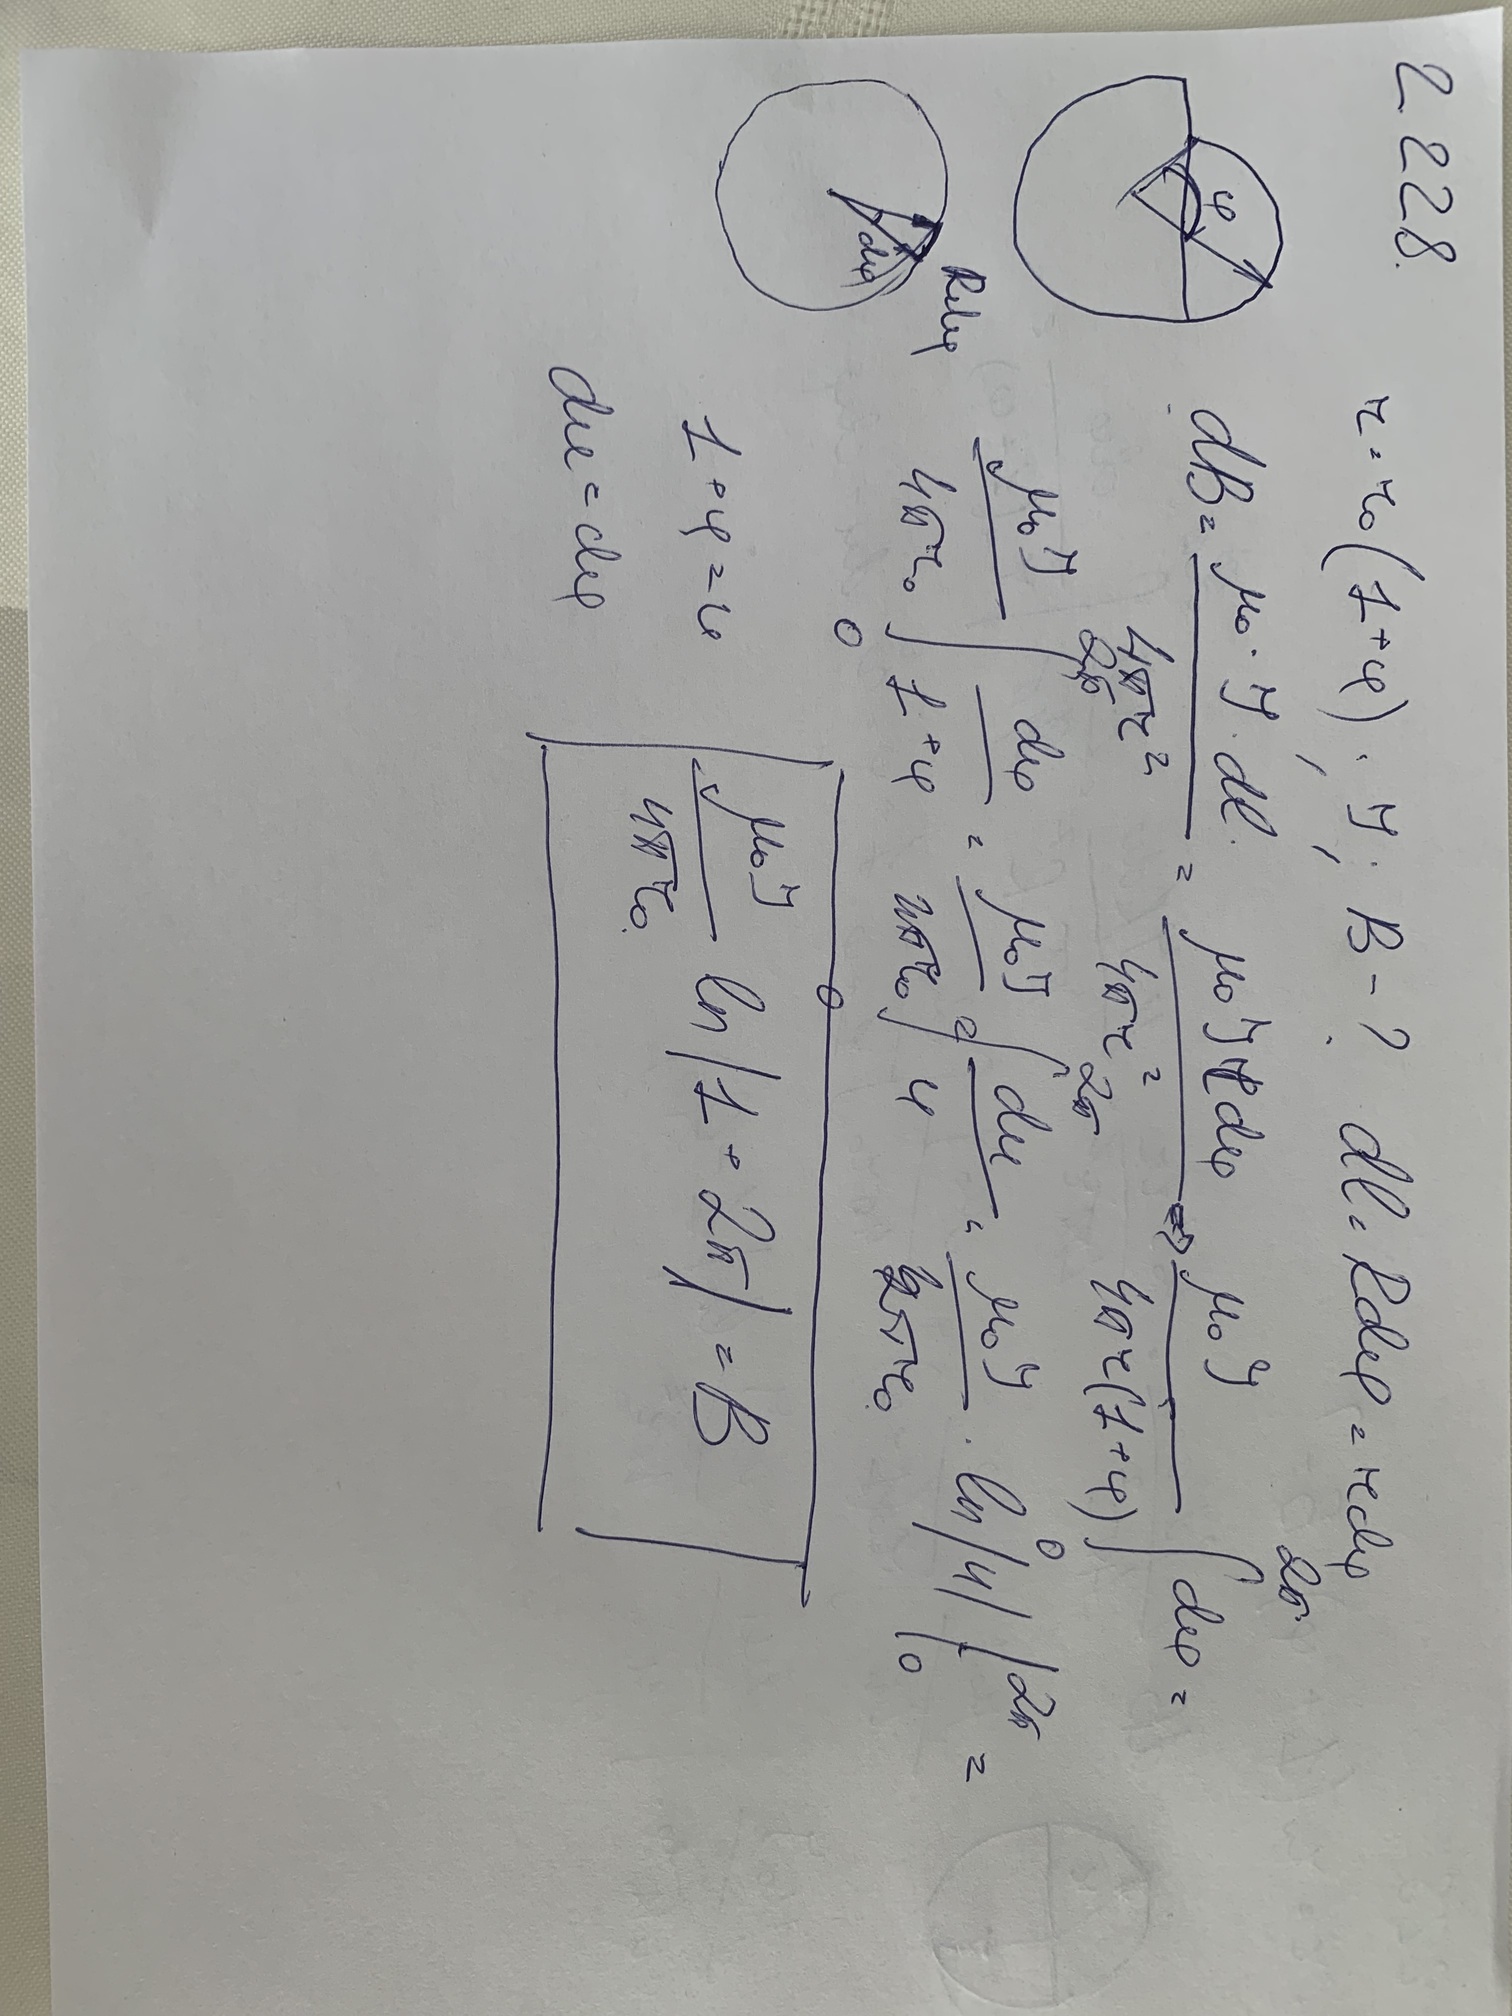 2.228.
r = r₀(1+φ), · I; B - ? dl = Rdφ = rdφ
φ
dB = μ₀·I·dl / 4πr² = μ₀Irdφ / 4πr² => μ₀I / 4πr(1+φ) ∫₀^2π dφ =
dφ
Rdφ
μ₀I / 4πr₀ ∫₀^2π dφ / 1+φ = μ₀I / 4πr₀ ∫₀^2π du / u = μ₀I / 4πr₀ · ln|u| |₀^2π =
1+φ = u
du = dφ
μ₀I / 4πr₀ ln|1+2π| = B